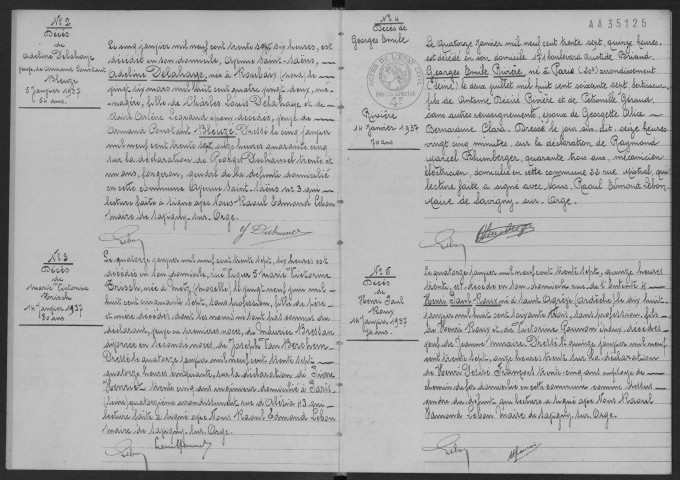 N° 2
Décès
de
Adeline Delahaye
Bleuze
5 Janvier 1937
54 ans.
Le cinq janvier mil neuf cent trente sept six heures, est
décédée en son domicile, Avenue Saint-Saëns,
Adeline Delahaye, née à Roubaix (Nord), le
vingt six mars mil huit cent quatre vingt deux, mé-
nagère, fille de Charles Louis Delahaye et de
Legrand époux décédés, veuve de
Armand Constant Bleuze. Dressé le cinq janvier
mil neuf cent trente sept onze heures quarante cinq
sur la déclaration de Georges Duhamel trente et
un ans, forgeron, gendre de la défunte domicilié
en cette commune Avenue Saint-Saëns n° 3 qui
lecture faite a signé avec Nous Raoul Edmond Lebon
maire de Savigny-sur-Orge.
Lebon
N° 3
Décès
de
Marie Victorine
Brisch
14 Janvier 1937
80 ans
Le quatorze janvier mil neuf cent trente sept, six heures est
décédée en son domicile, rue 5 Marie Victorine
Brisch, née à Metz (Moselle) le vingt neuf juin mil
huit cent cinquante sept, sans profession, fille de père
et mère décédés dont les noms ne sont pas connus du
déclarant, veuve en premières noces, de Maurice Bressan
divorcée en secondes noces de Joseph Van Berchem
Dressé le quatorze janvier mil neuf cent trente sept
quatorze heures cinquante, sur la déclaration de Pierre
Henriet trente cinq ans ingénieur domicilié à Paris
quatorzième arrondissement rue d'Alésia 43 qui
lecture faite a signé avec Nous Raoul Edmond Lebon
maire de Savigny-sur-Orge.
Lebon
AA35125
N° 4
Décès de
Georges Emile
Rivière
14 Janvier 1937
70 ans
Le quatorze janvier mil neuf cent trente sept, quinze heures,
est décédé en son domicile 17 boulevard Aristide Briand
Georges Emile Rivière né à Paris (20e) arrondissement
(Seine) le deux juillet mil huit cent soixante sept,
fils de Antoine Rivière et de Pétronille Géraud,
sans autres renseignements, époux de Georgette Alice
Bernardine Clara. Dressé le jour sus dit, seize heures
vingt cinq minutes, sur la déclaration de Raymond
Marcel Blumberger, quarante trois ans, mécanicien
électricien, domicilié en cette commune 22 rue Mistral, qui
lecture faite a signé avec Nous, Raoul Edmond Lebon
Maire de Savigny-sur-Orge.
Lebon
N° 5
Décès
de
Henri Paul
Roux
14 Janvier 1937
Le quatorze janvier mil neuf cent trente sept, quinze heures
trente, est décédé en son domicile rue de l'Union 11
Henri Paul Roux né à Saint Agrève (Ardèche) le dix huit
janvier mil huit cent soixante trois, sans profession, fils
de Henri Roux et de Victorine époux décédés
veuf de Jeanne Dressé le quinze janvier mil neuf
cent trente sept, onze heures trente sur la déclaration
de Henri François trente cinq ans employé de
chemin de fer domicilié en cette commune comme dessus
gendre du défunt qui lecture a signé avec Nous Raoul
Edmond Lebon Maire de Savigny-sur-Orge.
Lebon